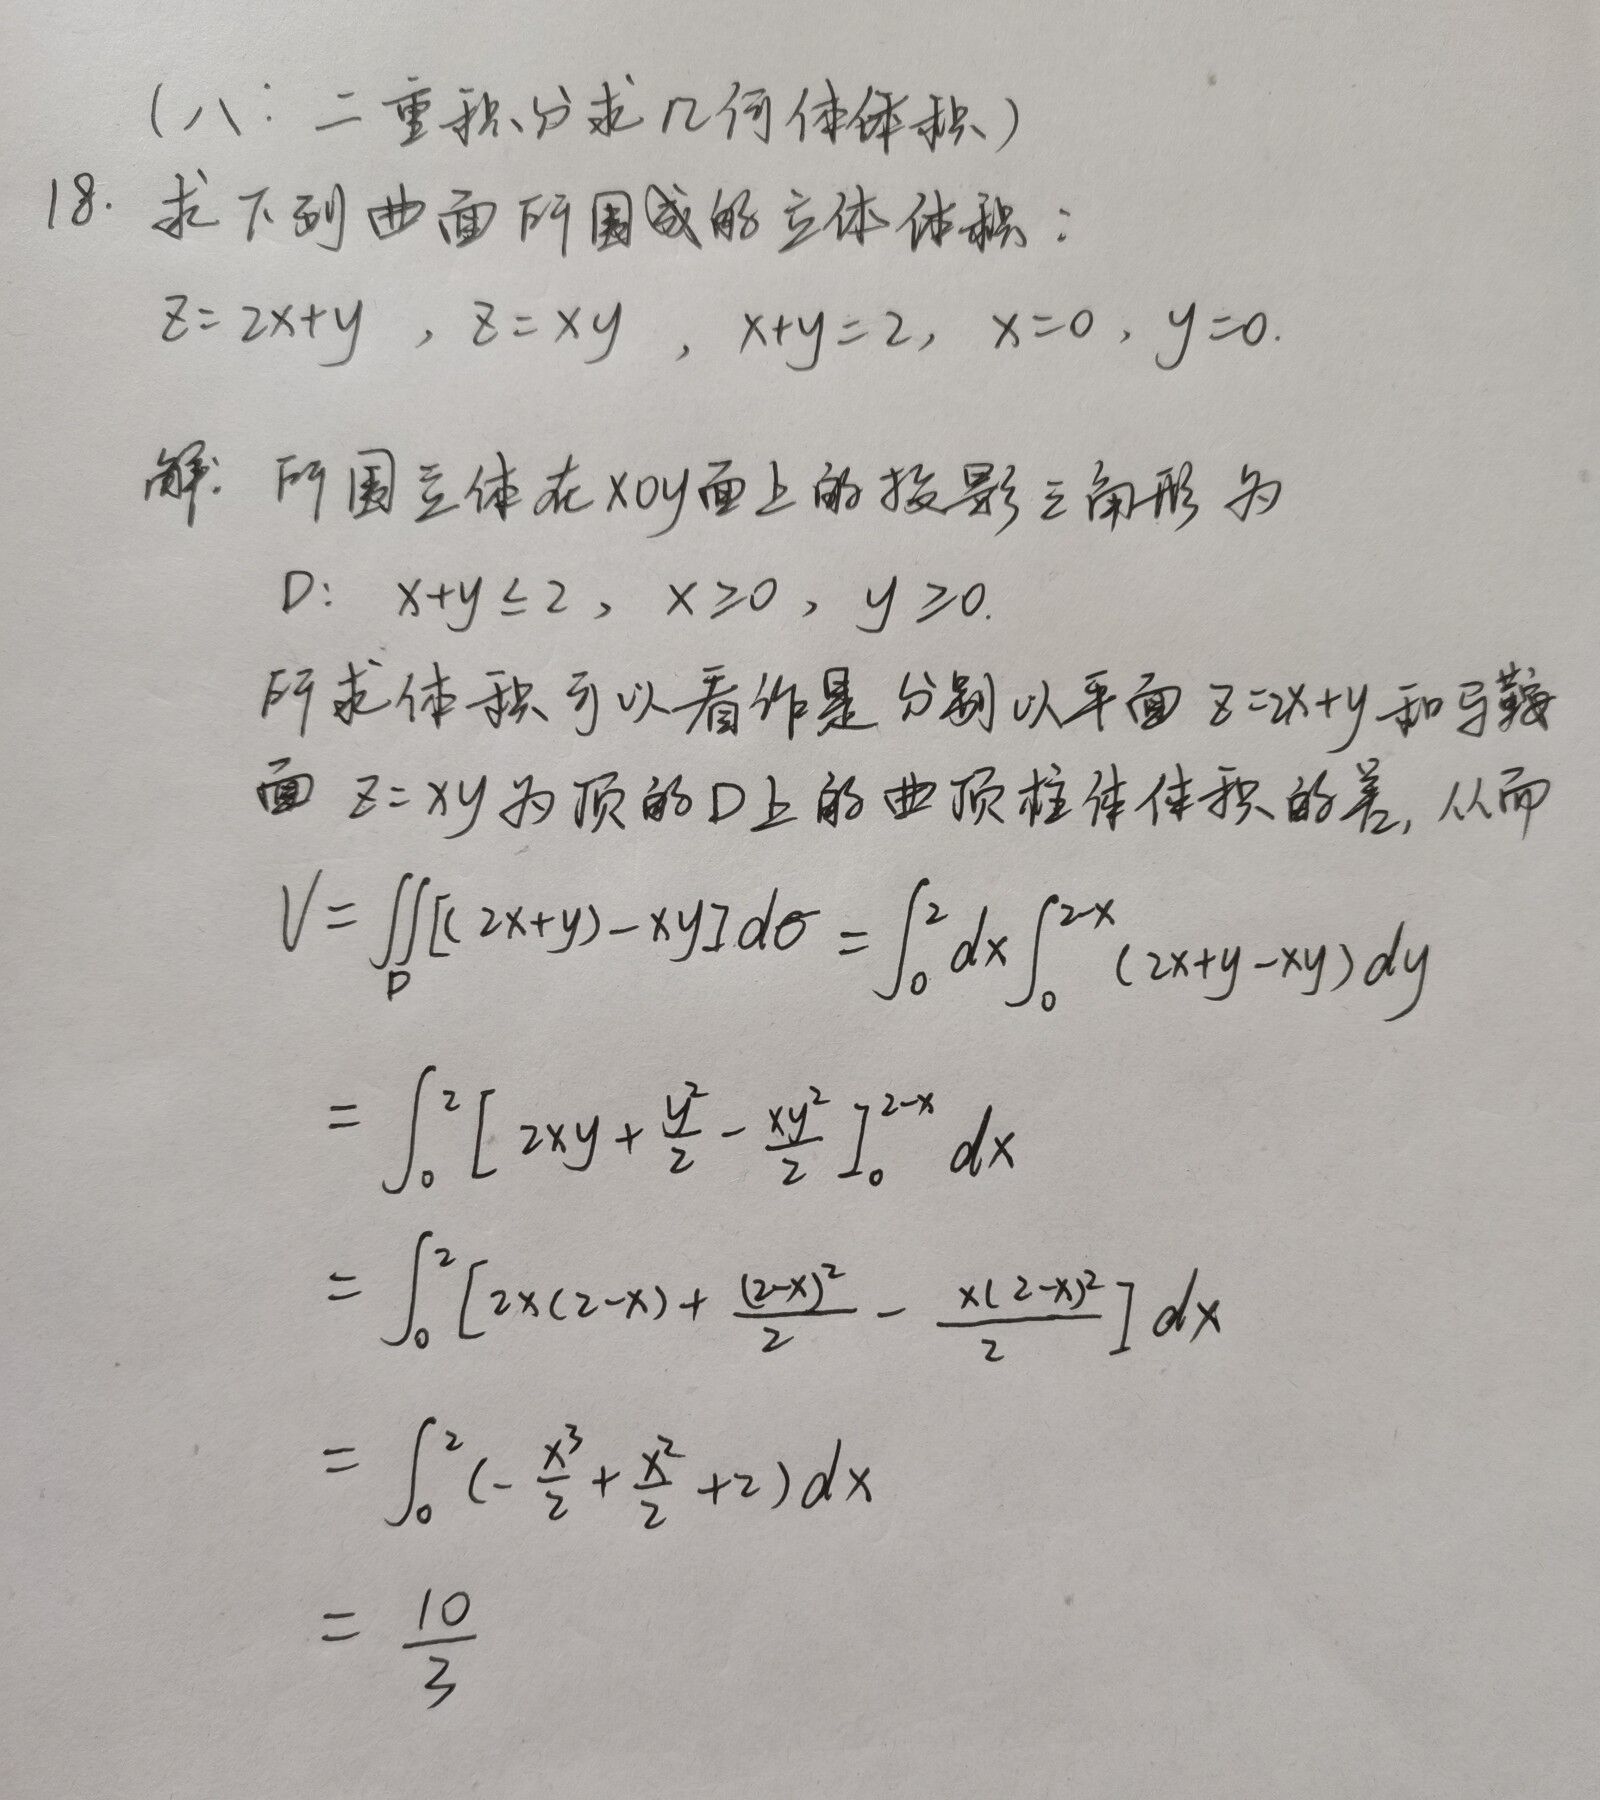 (八：二重积分求几何体体积)
18. 求下列曲面所围成的立体体积：
z=2x+y , z=xy , x+y=2, x=0, y=0.
解: 所围立体在xoy面上的投影三角形为
D: x+y≤2, x≥0, y≥0.
所求体积可以看作是分别以平面z=2x+y和马鞍
面z=xy为顶的D上的曲顶柱体体积的差, 从而
V=∬_D[(2x+y)-xy]dσ=∫_0^2 dx∫_0^{2-x} (2x+y-xy)dy
=∫_0^2 [2xy+\frac{y^2}{2}-\frac{xy^2}{2}]_0^{2-x} dx
=∫_0^2 [2x(2-x)+\frac{(2-x)^2}{2}-\frac{x(2-x)^2}{2}]dx
=∫_0^2 (-\frac{x^3}{2}+\frac{x^2}{2}+2)dx
=\frac{10}{3}